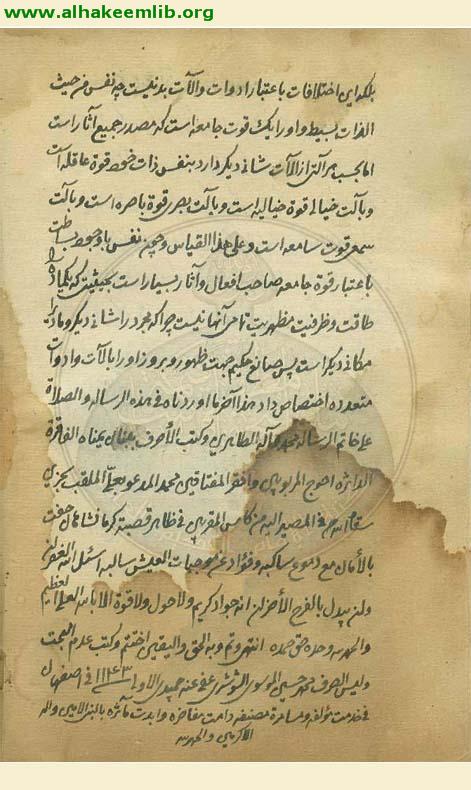 www.alhakeemlib.org
بلکه این اختلافات باعتبار ادوات والآت بدنیست چه نفس من حیث
الذات بسیط و او را یک قوت جامعه است که مصدر جمیع آثار است
اما بحسب هر آلتی از الآت شانی دیگر دارد بنفس ذات خود قوة عاقله است
و بآلت خیالی قوة خیالیه است و بآلت بصری قوة باصره است و بآلت
سمعی قوت سامعه است وعلی هذا القیاس وچون نفس با وجود بساطت
باعتبار قوة جامعه صاحب افعال وآثار بسیار است بحیثیتی که یکماده
طاقت و ظرفیت مظهریت تمامی آنها نیست چرا که مجرد را شانی دیگر و ماده را
مکانی دیگر است پس صانع حکیم جهت ظهور و بروز او را بالآت وادوات
متعدده اختصاص داد هذا آخر ما اوردناه فی هذه الرساله والصلاة
علی خاتم الرساله محمد وآله الطاهرین وکتب الأحرف ببنان یمناه الفاقرة
الداثره احوج المربوبین وافقر المفتاقین محمد المدعو بعلی الملقب بحزین
سقاه الله فی المصیر الیه من کاس المقربین فی ظاهر قصبة کرمانشاهان حفت
بالأمان مع دموع ساکبه وفؤاد عن موجبات العیش سالبه اسئل الله الغفران
وان یبدل بالفرح الأحزان انه جواد کریم ولا حول ولا قوة الا بالله العلی العظیم
والحمد لله وحده حق حمده انتهی وتم وبه الحق والیقین اختتم وکتب
ولیس الحرف محمد حسین الموسوی الشوشتری عفی عنه جمیدی الاولی ۱۱۴۳ فی اصفهان
فی خدمت مؤلفه ومصنفه دامت مفاخره وابدت مآثره بالنبی الامین وآله
الاکرمین والحمد لله